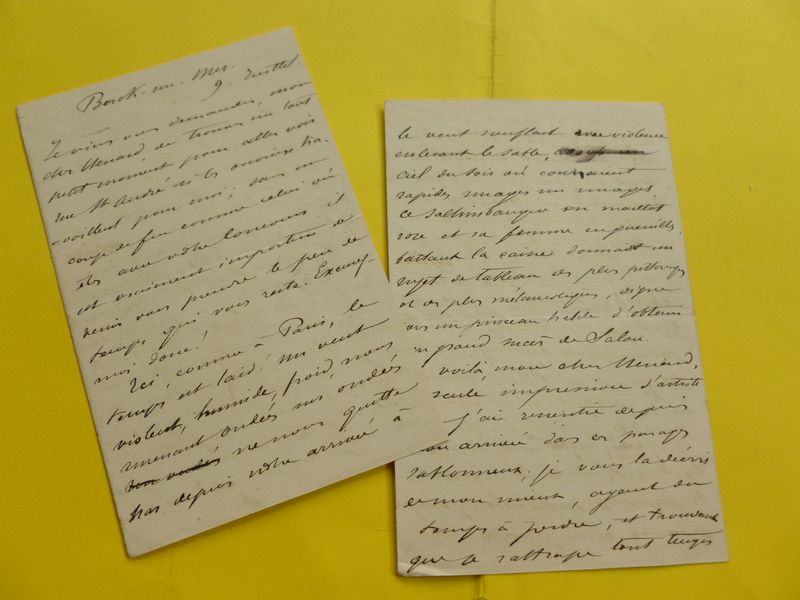 Berck-sur-Mer
9 Juillet
Je viens vous demander, mon
cher Menard, de trouver un tout
petit moment pour aller voir
rue St André si les ouvriers tra-
vaillent pour moi; dans un
coup de feu comme celui où
êtes avec votre concours il
est vraiment importun de
venir vous prendre le peu de
temps qui vous reste. Excusez-
moi donc!
Ici, comme à Paris, le
temps est laid. Un vent
violent, humide, froid, nous
amenant ondées sur ondées
ne nous quitte
pas depuis notre arrivée à
le vent soufflait avec violence
enlevant le sable,
ciel du soir où couraient
rapides nuages sur nuages,
ce saltimbanque en maillot
rose et sa femme en guenilles,
battant la caisse donnait un
sujet de tableau des plus pittoresques
et des plus mélancoliques, digne
sous un pinceau habile d'obtenir
un grand succès de Salon.
voilà, mon cher Menard,
seule impression d'artiste
j'aie ressentie depuis
mon arrivée dans ces parages
sablonneux; je vous la décris
de mon mieux, ayant du
temps à perdre, et trouvant
que je rattrape tout temps